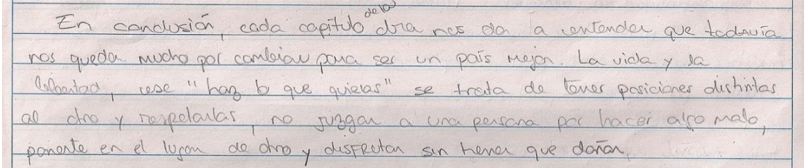 En conclusión, cada capítulo de la obra nos da a entender que todavía
nos queda mucho por cambiar para ser un país mejor. La vida y la
libertad, ese "haz lo que quieras" se trata de tener posiciones distintas
al otro y respetarlas, no juzgar a una persona por hacer algo malo,
ponerte en el lugar de otro y disfrutar sin tener que dañar.